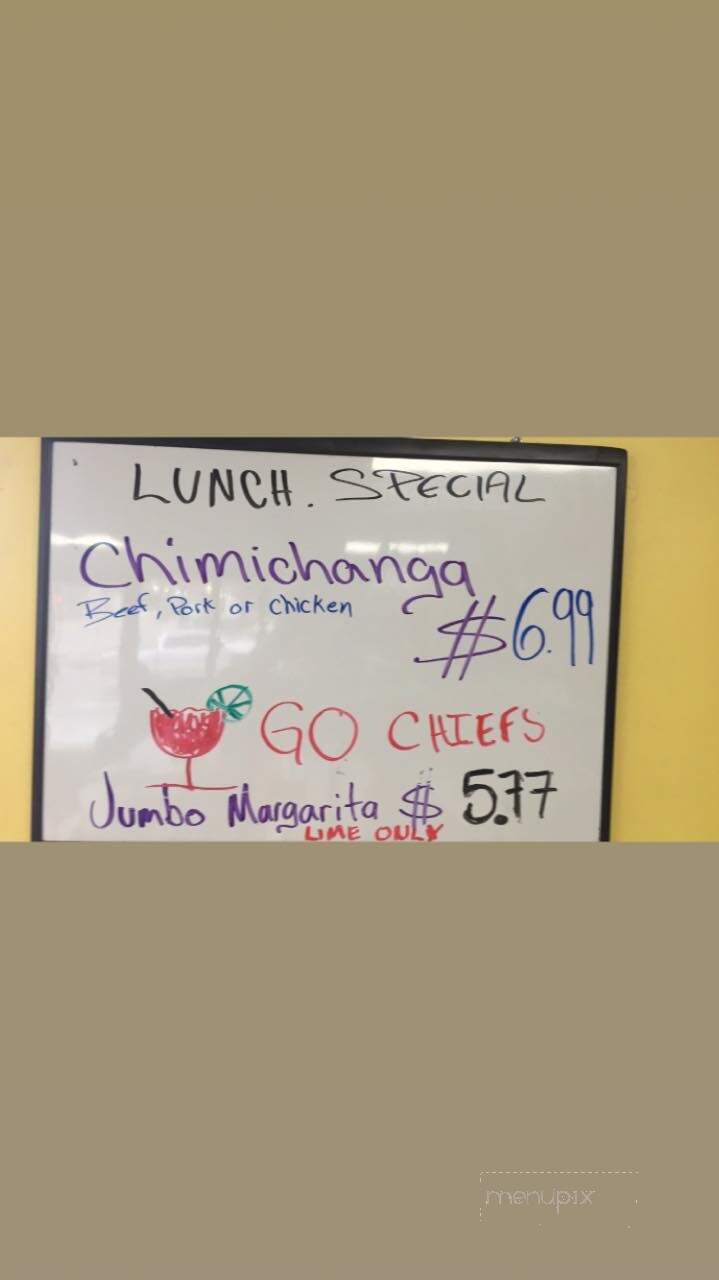 LUNCH. SPECIAL
Chimichanga
Beef, Pork or Chicken
$6.99
GO CHIEFS
Jumbo Margarita $ 5.77
LIME ONLY
menupix